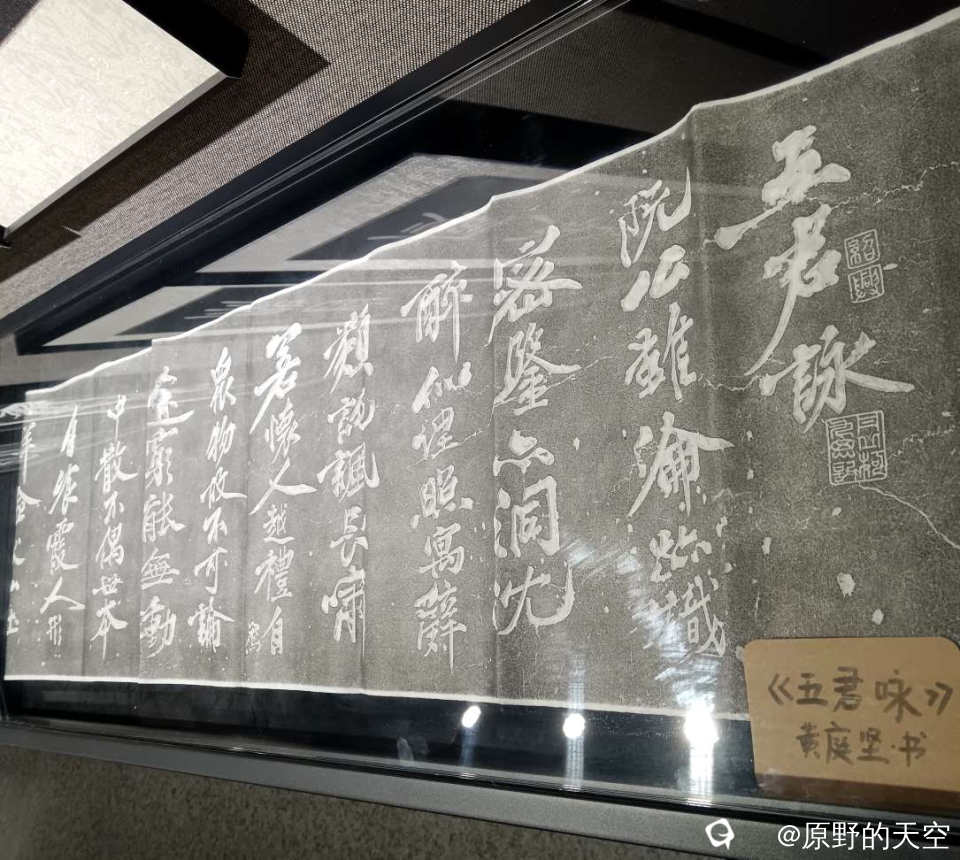 五君詠
紹興
阮公雖淪跡識
密鑒亦洞沈
醉似埋照寓辭
類託諷長嘯
若懷人越禮自驚
衆物故不可論
途窮能無慟
中散不偶世本
自餐霞人形
《五君咏》
黄庭坚·书
@原野的天空